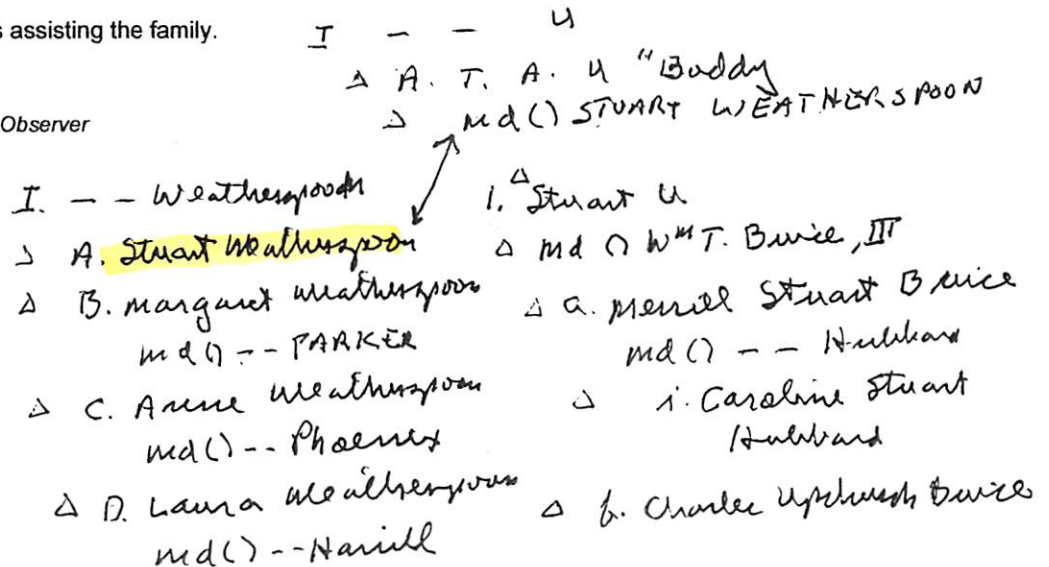 s assisting the family.
I - - U
Δ A. T. A. U "Buddy
Δ md () STUART WEATHERSPOON
Observer
I. - - Weatherspoon
Δ A. Stuart Weatherspoon
Δ B. Margaret Weatherspoon
md () -- PARKER
Δ C. Anne Weatherspoon
md () -- Phoenix
Δ D. Laura Weatherspoon
md () -- Harrill
1. Δ Stuart U
Δ md () Wm T. Brice, III
Δ a. Merrill Stuart Brice
md () - - Hubbard
Δ i. Caroline Stuart
Hubbard
Δ b. Charles Upchurch Brice